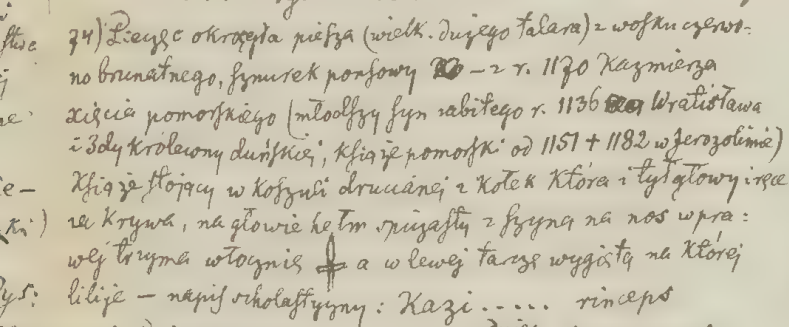 74) Pieczęć okrągła piesza (wielk. dużego talara) z wosku czerwo-
no brunatnego, sznurek ponsowy – z r. 1170 Kazmierza
xięcia pomorskiego (młodszy syn zabitego r. 1136 Wratisława
i 3dy królewny duńskiej, książe pomorski od 1151 + 1182 w Jerozolimie)
Książe stojący w koszuli drucianej z kółek która i tył głowy i ręce
za krywa, na głowie hełm spiczasty z szyną na nos w pra:
wej trzyma włocznię a w lewej tarczę wygiętą na której
lilije – napis scholastyczny: Kazi..... rinceps